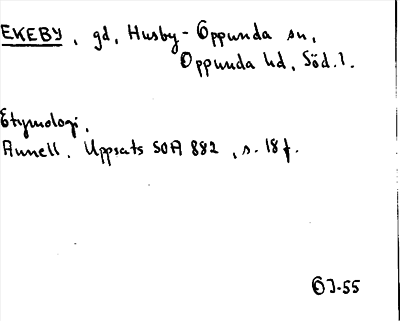 EKEBY, gd, Husby-Oppunda sn,
Oppunda hd, Söd.l.
Etymologi.
Annell. Uppsats SOA 882, s. 18 f.
ÖJ-55